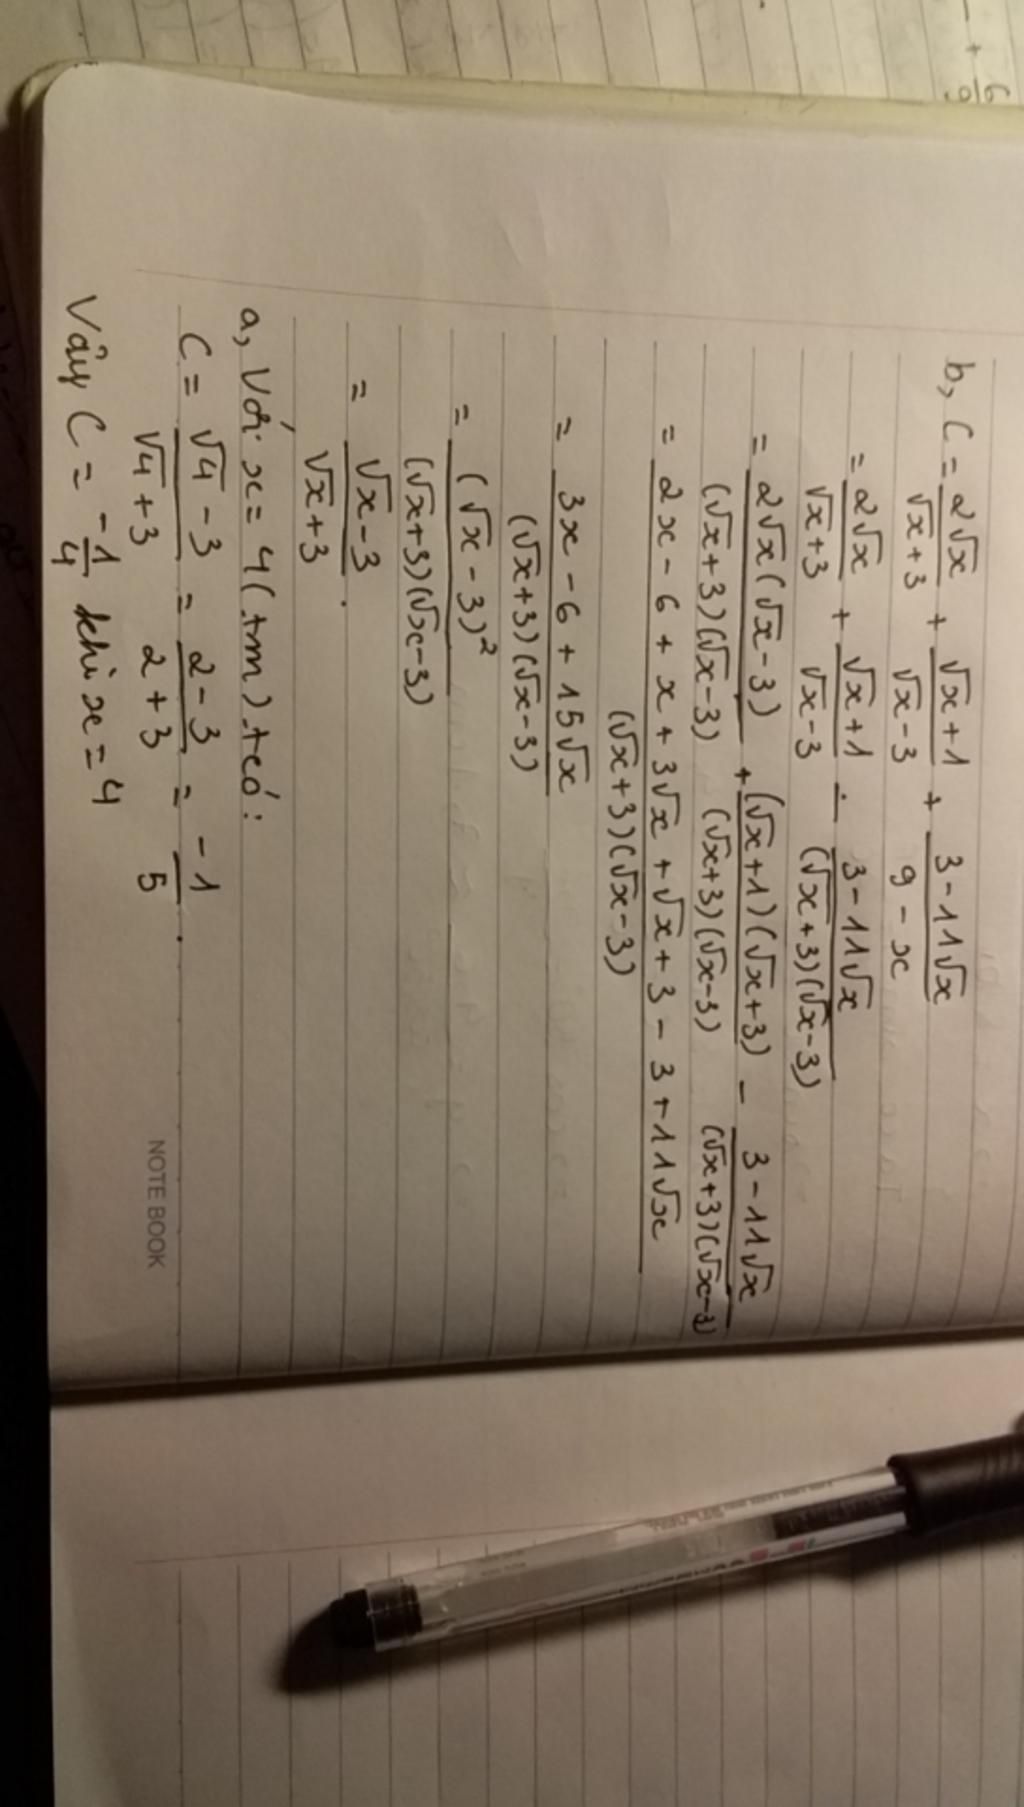 b, C = 2√x/(√x+3) + (√x+1)/(√x-3) + (3-11√x)/(9-x)
= 2√x/(√x+3) + (√x+1)/(√x-3) - (3-11√x)/((√x+3)(√x-3))
= 2√x(√x-3)/((√x+3)(√x-3)) + (√x+1)(√x+3)/((√x+3)(√x-3)) - (3-11√x)/((√x+3)(√x-3))
= (2x-6+x+3√x+√x+3-3+11√x)/((√x+3)(√x-3))
= (3x-6+15√x)/((√x+3)(√x-3))
= (√x-3)²/((√x+3)(√x-3))
= (√x-3)/(√x+3).
a, Với x=4 (tm) tcó:
C = (√4-3)/(√4+3) = (2-3)/(2+3) = -1/5.
Vậy C = -1/4 khi x=4
NOTE BOOK